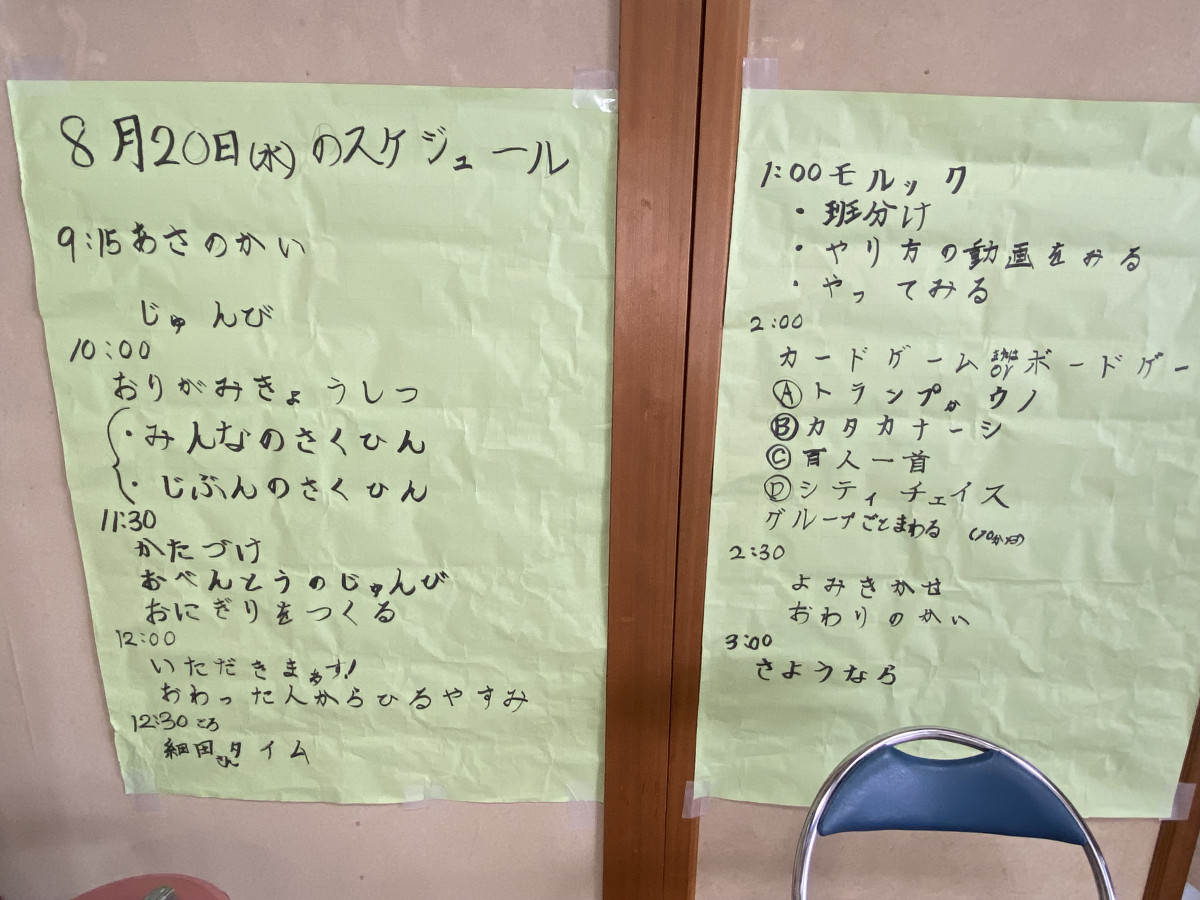 8月20日(水)のスケジュール
9:15あさのかい
じゅんび
10:00
おりがみきょうしつ
・みんなのさくひん
・じぶんのさくひん
11:30
かたづけ
おべんとうのじゅんび
おにぎりをつくる
12:00
いただきまぁす!
おわった人からひるやすみ
12:30ころ
細田さんタイム
1:00モルック
・班分け
・やり方の動画をみる
・やってみる
2:00
カードゲーム または or ボードゲー
Ⓐトランプかウノ
Ⓑカタカナーシ
Ⓒ百人一首
Ⓓシティチェイス
グループごとまわる
2:30
よみきかせ
おわりのかい
3:00
さようなら